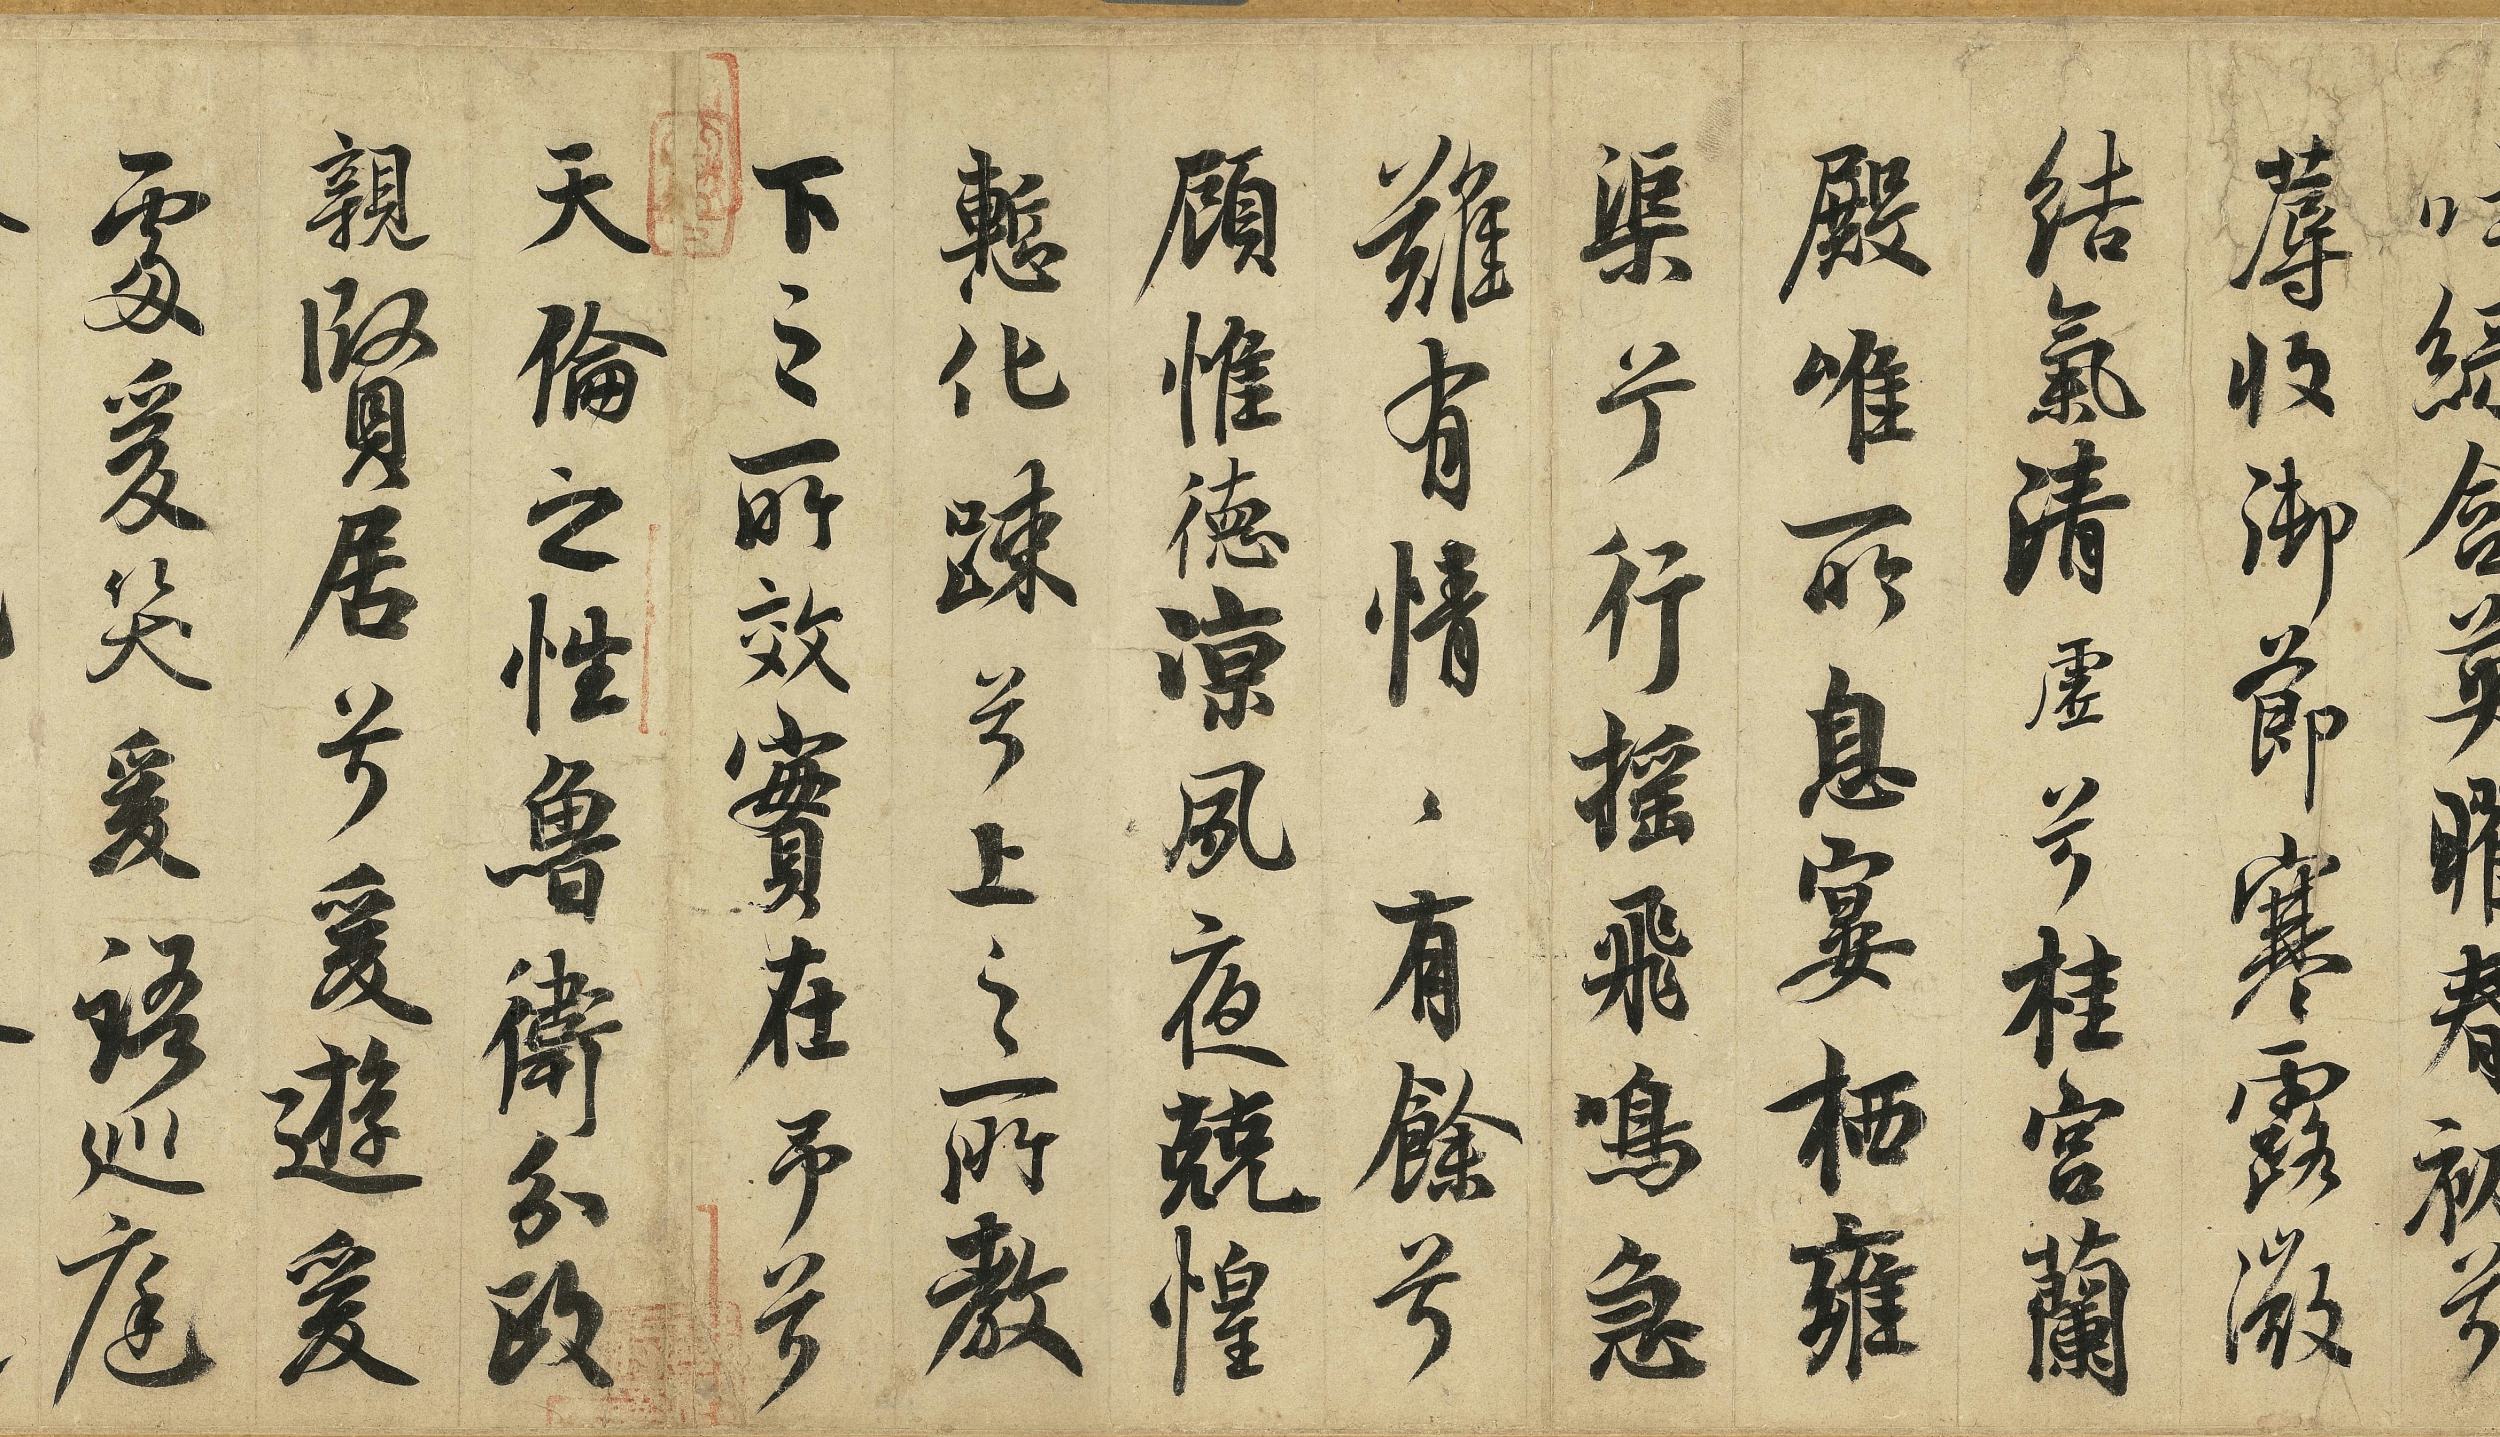 吐綠含英曜春初兮
蓐收御節寒露溦
結氣清虛兮桂宮蘭
殿唯所息宴栖雍
渠兮行搖飛鳴急
難有情〻有餘兮
顧惟德涼夙夜兢惶
慙化踈兮上之所教
下之所效實在予兮
天倫之性魯衛分政
親賢居兮爰遊爰
處爰笑爰語巡庭